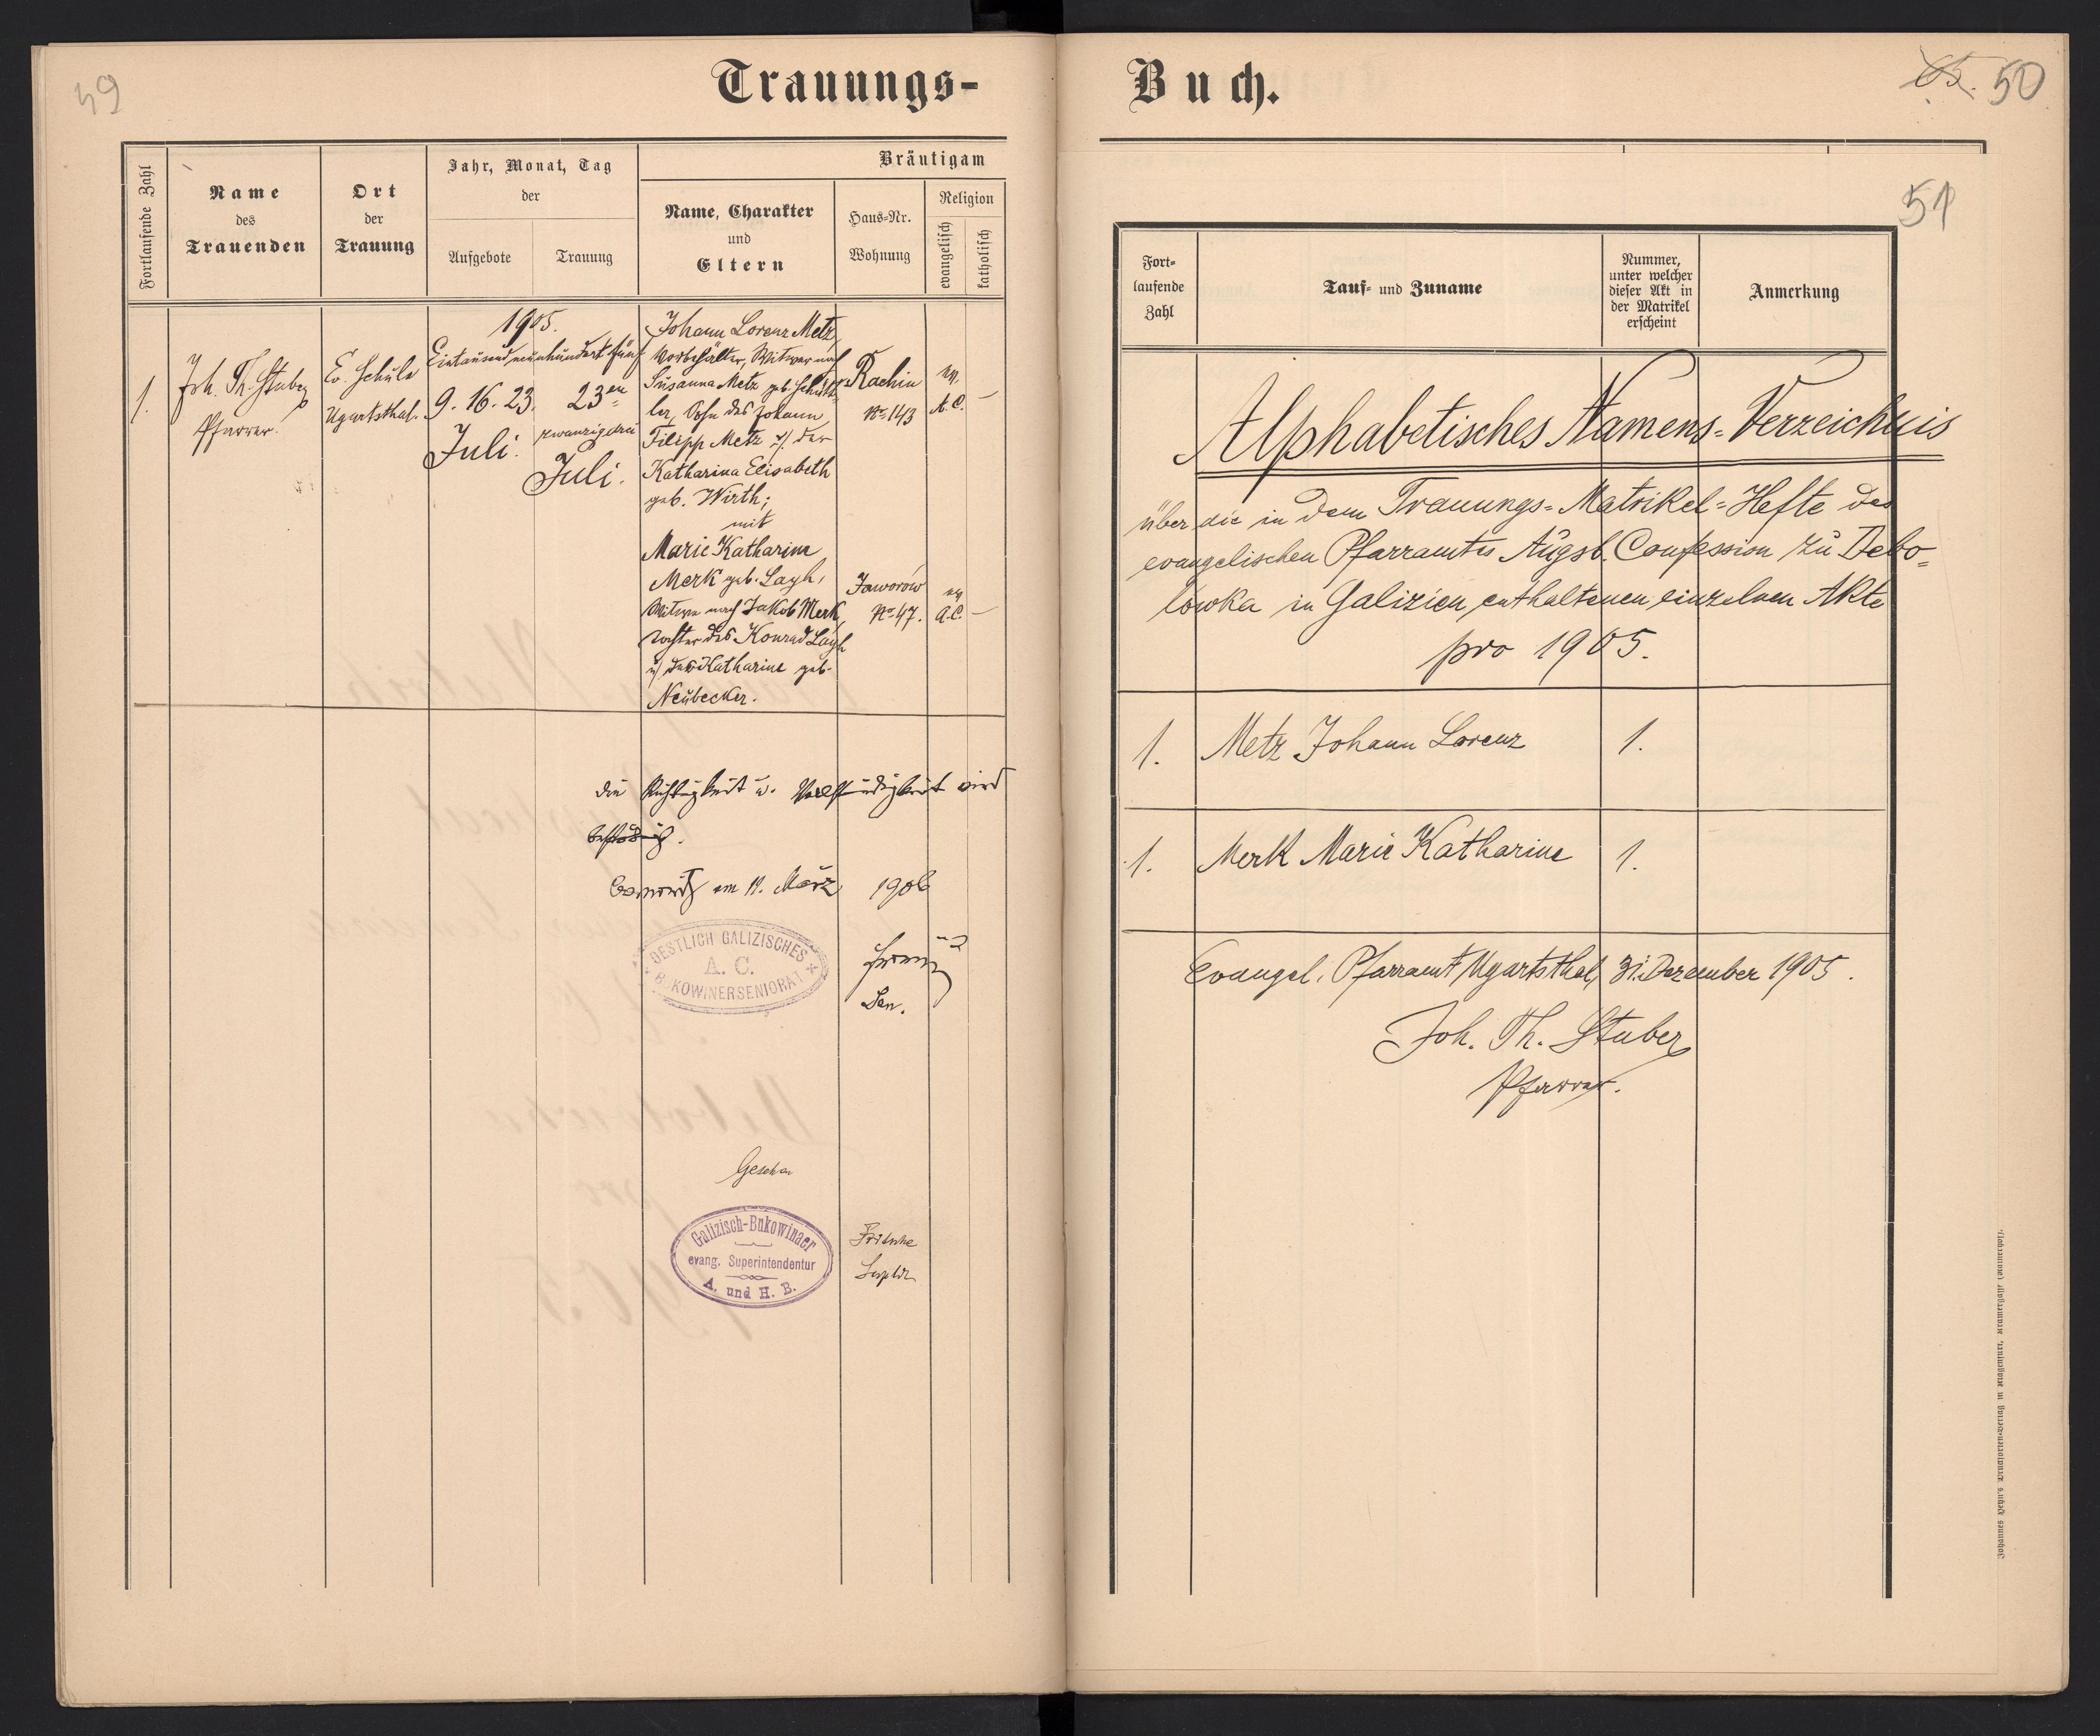 49
Trauungs-
Fortlaufende Zahl
Name
des
Trauenden
Ort
der
Trauung
Jahr, Monat, Tag
der
Aufgebote
Trauung
Bräutigam
Name, Charakter
und
Eltern
Haus-Nr.
Wohnung
Religion
evangelisch
katholisch
1.
Joh. Th. Stuber
Pfarrer.
Ev. Schule
Ugartsthal.
1905.
Eintausend neunhundert fünf
9. 16. 23.
Juli.
23en
zwanzigdrei
Juli.
Johann Lorenz Metz,
Vorbehälter, Witwer nach
Susanna Metz geb. Schütt-
ler, Sohn des Johann
Filipp Metz u/ der
Katharina Elisabeth
geb. Wirth;
mit
Marie Katharine
Merk geb. Layh,
Witwe nach Jakob Merk,
Tochter des Konrad Layh
u/ der Katharine geb.
Neubecker.
Rachin
No 143
ev.
A. C.
—
Jaworów
No 47.
ev.
A. C.
—
Die Richtigkeit u. Vollständigkeit wird
bestätigt.
am 19. März 1906
OESTLICH GALIZISCHES
A. C.
BUKOWINERSENIORAT
Sen.
Gesehen
Galizisch-Bukowinaer
evang. Superintendentur
A. und H. B.
Fritsche
Buch.
50
51
Fort-
laufende
Zahl
Tauf- und Zuname
Nummer,
unter welcher
dieser Akt in
der Matrikel
erscheint
Anmerkung
Alphabetisches Namens-Verzeichnis
über die in dem Trauungs-Matrikel-Hefte des
evangelischen Pfarramtes Augsb. Confession zu Debo-
lówka in Galizien enthaltenen einzelnen Akte
pro 1905.
1. Metz Johann Lorenz 1.
1. Merk Marie Katharine 1.
Evangel. Pfarramt Ugartsthal, 31. Dezember 1905.
Joh. Th. Stuber
Pfarrer.
Johannes Heyn's Drucksorten-Verlag in Klagenfurt, Kramergasse (Kamerhof).